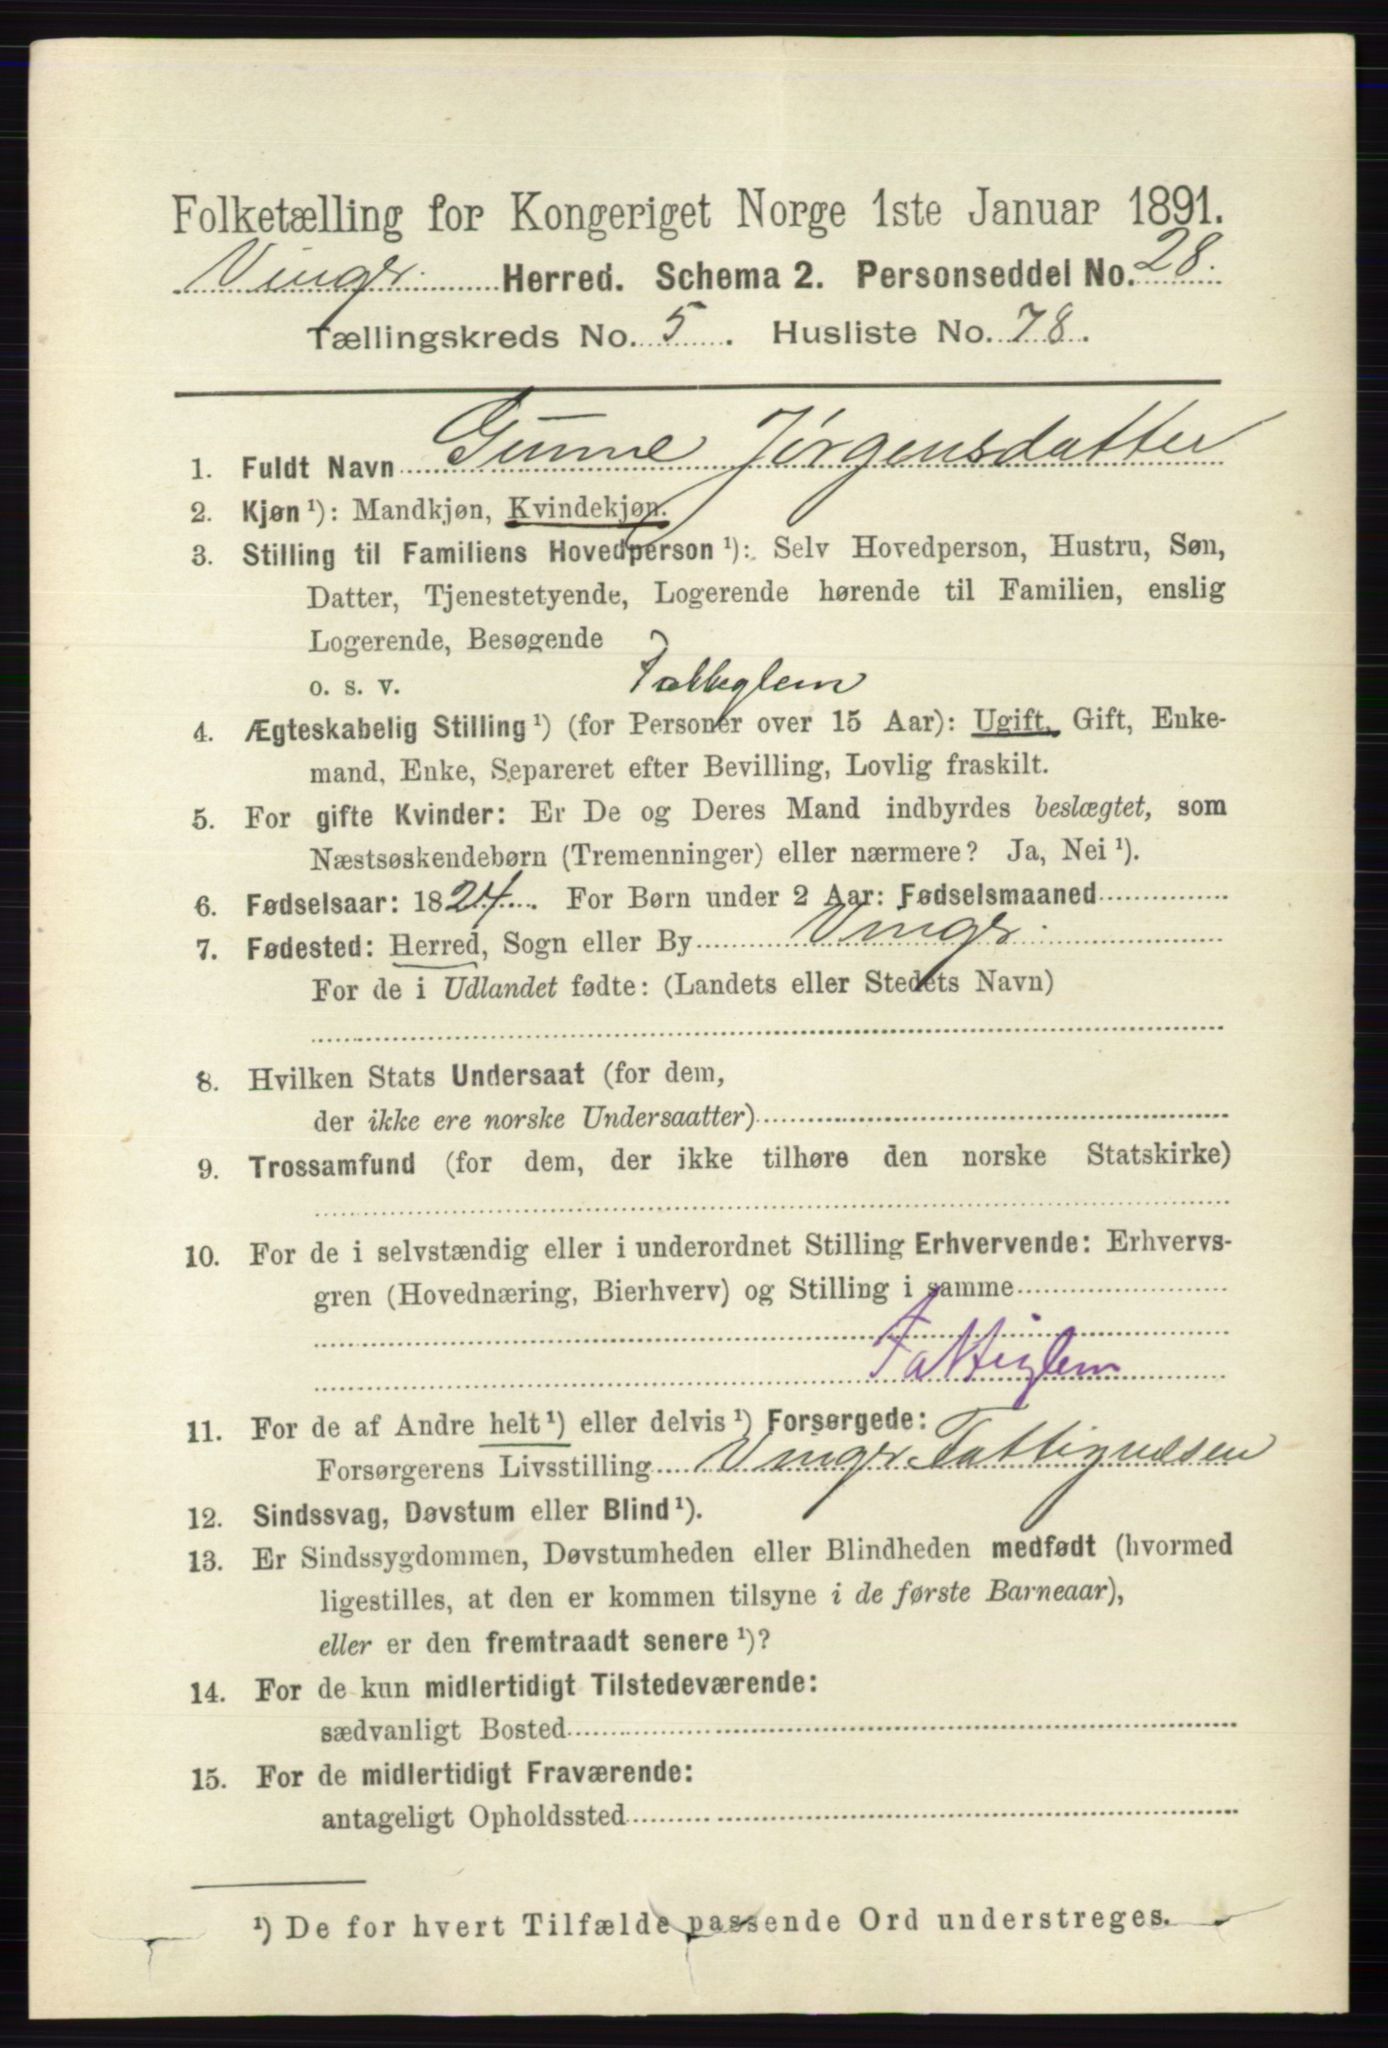 Folketælling for Kongeriget Norge 1ste Januar 1891.
Vinger Herred. Schema 2. Personseddel No. 28.
Tællingskreds No. 5. Husliste No. 78.
1. Fuldt Navn Gunne Jörgensdatter
2. Kjøn ¹): Mandkjøn, Kvindekjøn.
3. Stilling til Familiens Hovedperson ¹): Selv Hovedperson, Hustru, Søn,
Datter, Tjenestetyende, Logerende hørende til Familien, enslig
Logerende, Besøgende
o. s. v. Fattiglem
4. Ægteskabelig Stilling ¹) (for Personer over 15 Aar): Ugift, Gift, Enke-
mand, Enke, Separeret efter Bevilling, Lovlig fraskilt.
5. For gifte Kvinder: Er De og Deres Mand indbyrdes beslægtet, som
Næstsøskendebørn (Tremenninger) eller nærmere? Ja, Nei ¹).
6. Fødselsaar: 1824. For Børn under 2 Aar: Fødselsmaaned
7. Fødested: Herred, Sogn eller By Vinger
For de i Udlandet fødte: (Landets eller Stedets Navn)
8. Hvilken Stats Undersaat (for dem,
der ikke ere norske Undersaatter)
9. Trossamfund (for dem, der ikke tilhøre den norske Statskirke)
10. For de i selvstændig eller i underordnet Stilling Erhvervende: Erhvervs-
gren (Hovednæring, Bierhverv) og Stilling i samme
Fattiglem
11. For de af Andre helt ¹) eller delvis ¹) Forsørgede:
Forsørgerens Livsstilling Vinger Fattigvæsen
12. Sindssvag, Døvstum eller Blind ¹).
13. Er Sindssygdommen, Døvstumheden eller Blindheden medfødt (hvormed
ligestilles, at den er kommen tilsyne i de første Barneaar),
eller er den fremtraadt senere ¹)?
14. For de kun midlertidigt Tilstedeværende:
sædvanligt Bosted
15. For de midlertidigt Fraværende:
antageligt Opholdssted
¹) De for hvert Tilfælde passende Ord understreges.